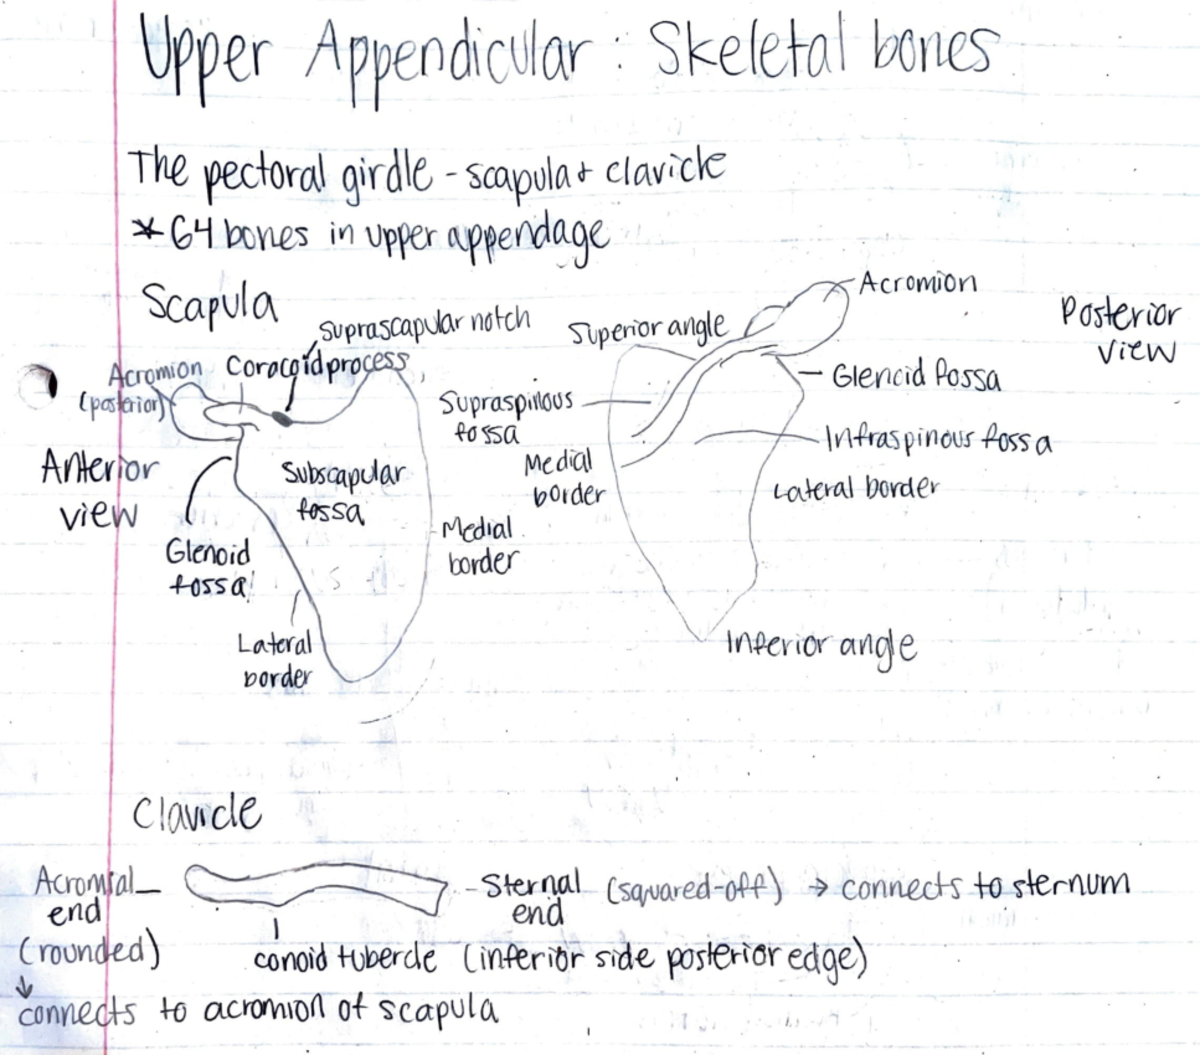 Upper Appendicular: Skeletal bones
The pectoral girdle - scapula + clavicle
* 64 bones in upper appendage
Scapula
Suprascapular notch
Acromion
(posterior)
Coracoid process
Anterior
view
Subscapular
fossa
Glenoid
fossa
Medial
border
Lateral
border
Posterior
view
Acromion
Superior angle
Glenoid fossa
Supraspinous
fossa
Infraspinous fossa
Medial
border
Lateral border
Inferior angle
Clavicle
Acromial
end
(rounded)
↓
connects to acromion of scapula
Sternal (squared-off) → connects to sternum
end
conoid tubercle (inferior side posterior edge)